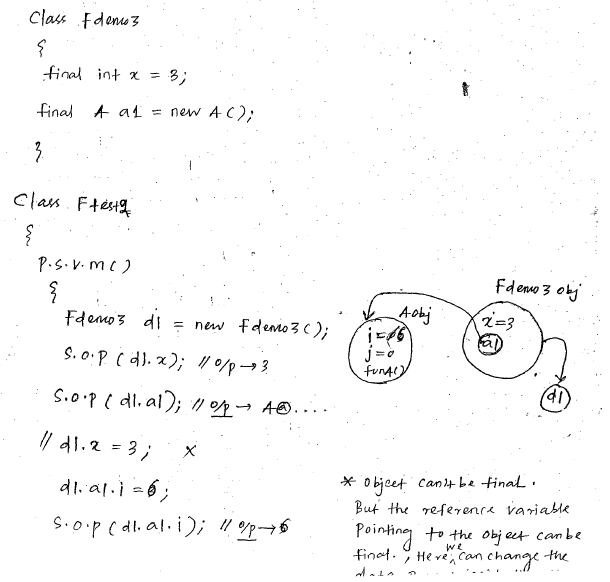 Class Fdemo3
{
final int x = 3;
final A a1 = new A();
}
Class Ftest2
{
P.S.V.m()
{
Fdemo3 d1 = new Fdemo3();
S.O.P(d1.x); // o/p → 3
S.O.P(d1.a1); // o/p → A@....
// d1.x = 3; x
d1.a1.i = 6;
S.O.P(d1.a1.i); // o/p → 6
Fdemo3 obj
A obj
x = 3
a1
i = 6
j = 0
funA()
d1
* Object can't be final.
But the reference variable
Pointing to the object can be
final., Here, we can change the